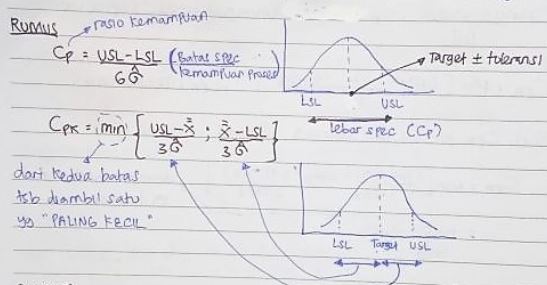 RUMUS
rasio kemampuan
Cp = USL-LSL / 6σ̂ (Batas spec / kemampuan proses)
Target ± toleransi
LSL USL
Lebar spec (Cp)
Cpk = min { USL-x̿ / 3σ̂ ; x̿-LSL / 3σ̂ }
dari kedua batas
tsb diambil satu
yg "PALING KECIL"
LSL Target USL